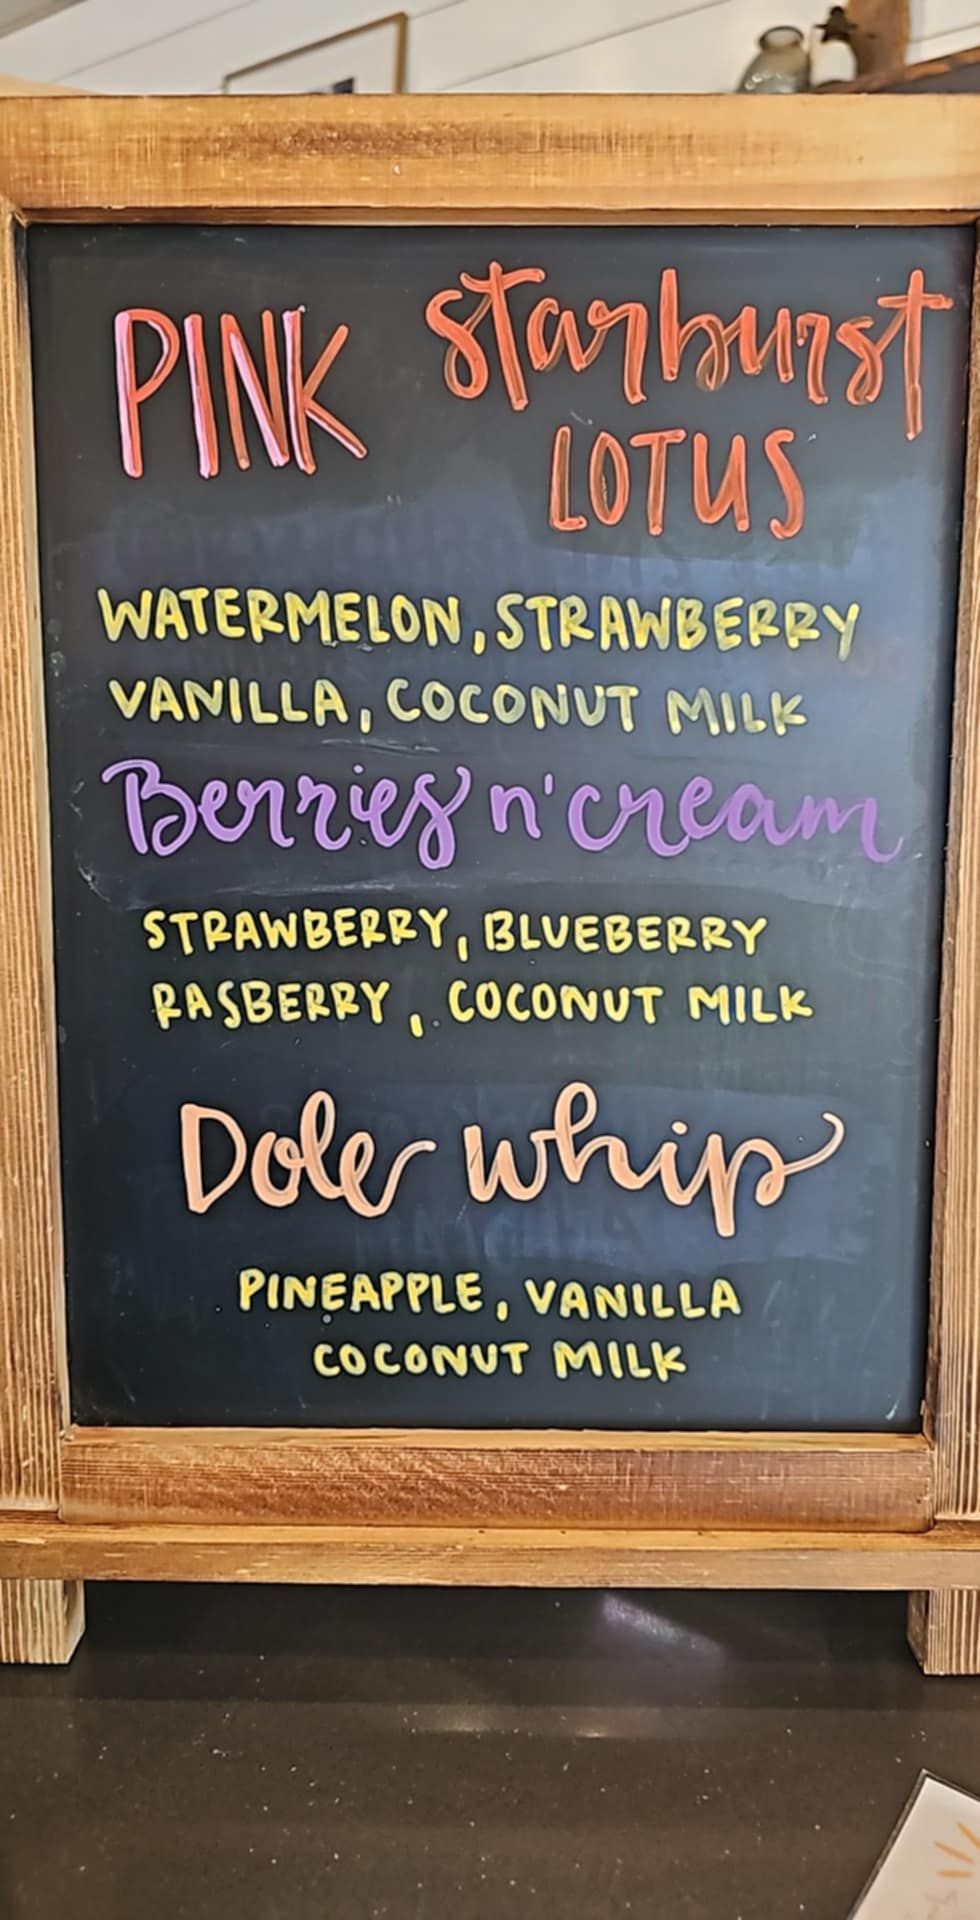 PINK starburst
LOTUS
WATERMELON, STRAWBERRY
VANILLA, COCONUT MILK
Berries n' cream
STRAWBERRY, BLUEBERRY
RASBERRY, COCONUT MILK
Dole whip
PINEAPPLE, VANILLA
COCONUT MILK